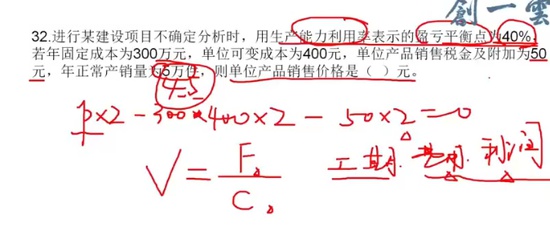 創一雲
32.进行某建设项目不确定分析时，用生产能力利用率表示的盈亏平衡点为40%，
若年固定成本为300万元，单位可变成本为400元，单位产品销售税金及附加为50
元，年正常产销量为5万件，则单位产品销售价格是（ ）元。
P×2-300×400×2-50×2=0
V=F/C
工期 费用 利润